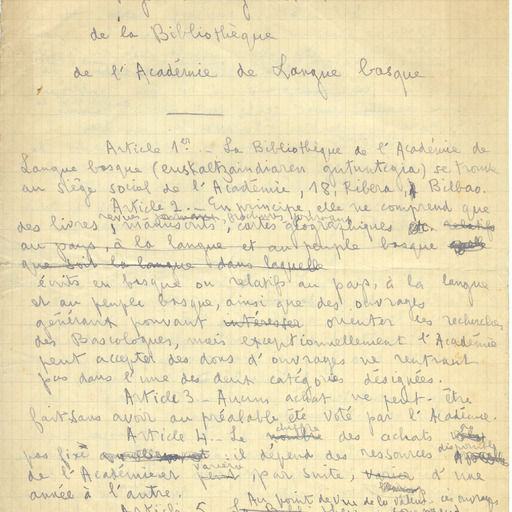 de la Bibliothèque
de l'Académie de Langue basque
Article 1er. - La Bibliothèque de l'Académie de
Langue basque (euskaltzaindiaren gutuntegia) se trouve
au siège social de l'Académie, 18, Ribera, Bilbao.
Article 2. - En principe, elle ne comprend que
revues, journaux, brochures
des livres, manuscrits, cartes géographiques etc. relatifs
au pays, à la langue et au peuple basque
que soit la langue dans laquelle
écrits en basque ou relatifs au pays, à la langue
et au peuple basque, ainsi que des ouvrages
généraux pouvant intéresser orienter les recherches
des Bascologues, mais exceptionnellement l'Académie
peut accepter des dons d'ouvrages ne rentrant
pas dans l'une des deux catégories désignées.
Article 3. - Aucun achat ne peut être
fait sans avoir au préalable été voté par l'Académie.
chiffre
Article 4. - Le nombre des achats
pas fixé : il dépend des ressources
disponibles
variera
de l'Académie et, par suite, varie d'une
année à l'autre.
Au point de vue de la valeur ces ouvrages
Article 5. La